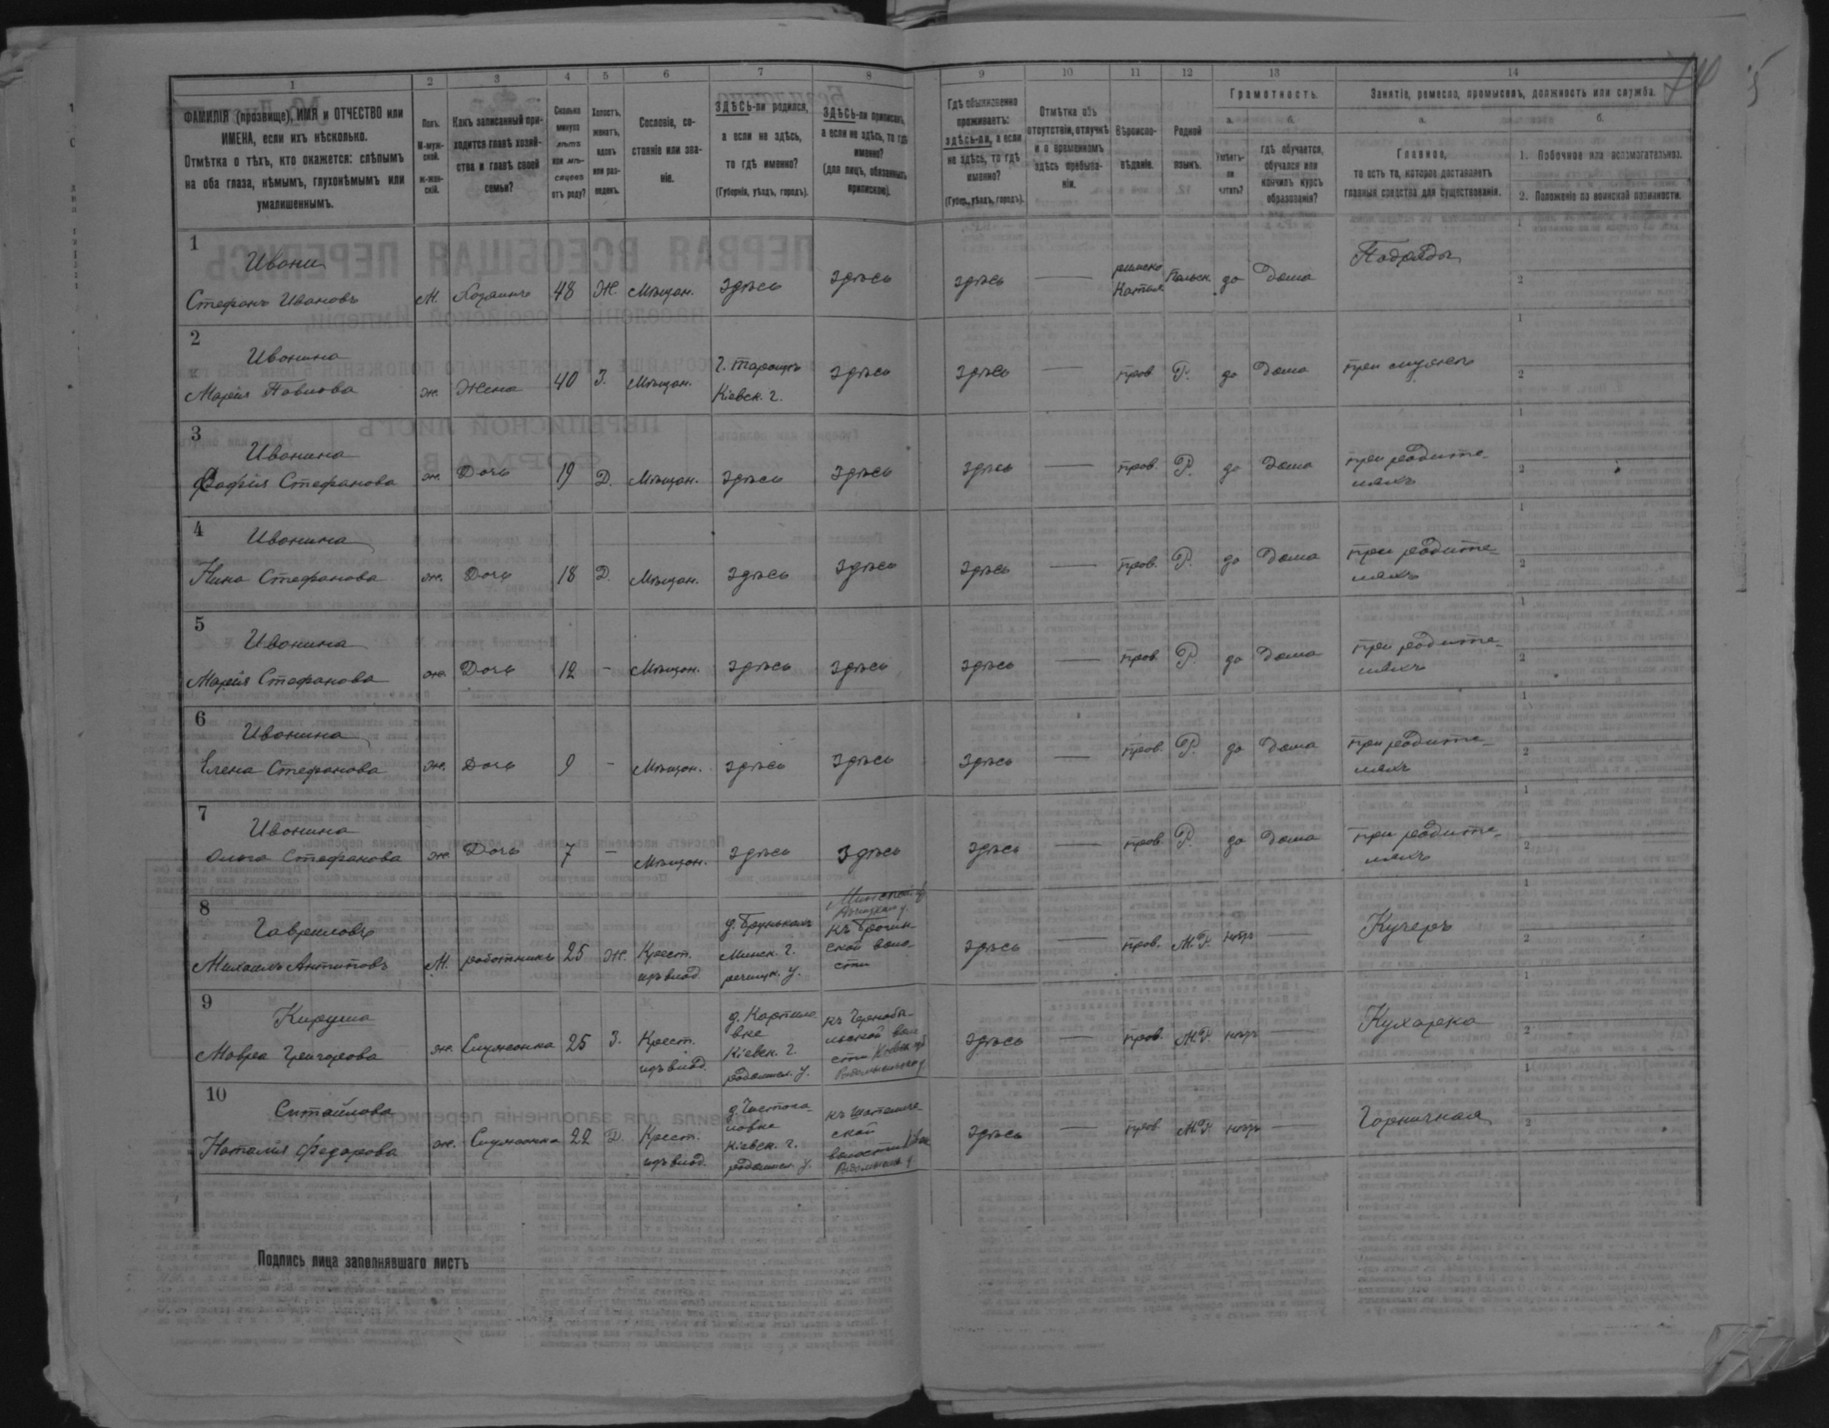 1 2 3 4 5 6 7 8 9 10 11 12 13 14
ФАМИЛІЯ (прозвище), ИМЯ и ОТЧЕСТВО или
ИМЕНА, если ихъ нѣсколько.
Отмѣтка о тѣхъ, кто окажется: слѣпымъ
на оба глаза, нѣмымъ, глухонѣмымъ или
умалишеннымъ.
Полъ.
М-муж-
ской.
ж-жен-
скій.
Какъ записанный при-
ходится главѣ хозяй-
ства и главѣ своей
семьи?
Сколько
минуло
лѣтъ
или мѣ-
сяцевъ
отъ роду?
Холостъ,
женатъ,
вдовъ
или раз-
веденъ.
Сословіе, со-
стояніе или зва-
ніе.
ЗДѢСЬ-ли родился,
а если не здѣсь,
то гдѣ именно?
(Губернія, уѣздъ, городъ).
ЗДѢСЬ-ли приписанъ,
а если не здѣсь, то гдѣ
именно?
(для лицъ, обязанныхъ
припискою).
Гдѣ обыкновенно
проживаетъ:
здѣсь-ли, а если
не здѣсь, то гдѣ
именно?
(Губер., уѣздъ, городъ).
Отмѣтка объ
отсутствіи, отлучкѣ
и о временномъ
здѣсь пребыва-
ніи.
Вѣроиспо-
вѣданіе.
Родной
языкъ.
Грамотность.
а.
Умѣетъ-
ли
читать?
б.
гдѣ обучается,
обучался или
кончилъ курсъ
образованія?
Занятіе, ремесло, промыселъ, должность или служба.
а.
Главное,
то есть то, которое доставляетъ
главныя средства для существованія.
б.
1. Побочное или вспомогательное.
2. Положеніе по воинской повинности.
1
Стефанъ Ивановъ М. Хозяинъ 48 Ж. Мѣщан. здѣсь здѣсь здѣсь — римско Катол. Польск. да Дома Подряды
2
Ивонина
Марія Павлова ж. Жена 40 З. Мѣщан. г. Таращъ Кіевск. г. здѣсь здѣсь — прав. Р. да Дома при мужѣ
3
Ивонина
Софія Стефанова ж. Дочь 19 Д. Мѣщан. здѣсь здѣсь здѣсь — прав. Р. да Дома при родите-
ляхъ
4
Ивонина
Нина Стефанова ж. Дочь 18 Д. Мѣщан. здѣсь здѣсь здѣсь — прав. Р. да Дома при родите-
ляхъ
5
Ивонина
Марія Стефанова ж. Дочь 12 — Мѣщан. здѣсь здѣсь здѣсь — прав. Р. да Дома при родите-
ляхъ
6
Ивонина
Елена Стефанова ж. Дочь 9 — Мѣщан. здѣсь здѣсь здѣсь — прав. Р. да Дома при родите-
ляхъ
7
Ивонина
Ольга Стефанова ж. Дочь 7 — Мѣщан. здѣсь здѣсь здѣсь — прав. Р. да Дома при родите-
ляхъ
8
Гавриловъ
Михаилъ Антиповъ М. работникъ 25 Ж. Крест. изъ влад. Минск. г. речицк. у. волости здѣсь — прав. М.Р. нѣтъ — Кучеръ
9
Мавра Григорова ж. Служанка 25 З. Крест. изъ влад. Кіевск. г. радомысл. у. къ Чернобы-
льской вол. здѣсь — прав. М.Р. нѣтъ — Кухарка
10
Наталія Федорова ж. Служанка 22 Д. Крест. изъ влад. Кіевск. г. радомысл. у. волости здѣсь — прав. М.Р. нѣтъ — Горничная
Подпись лица заполнявшаго листъ